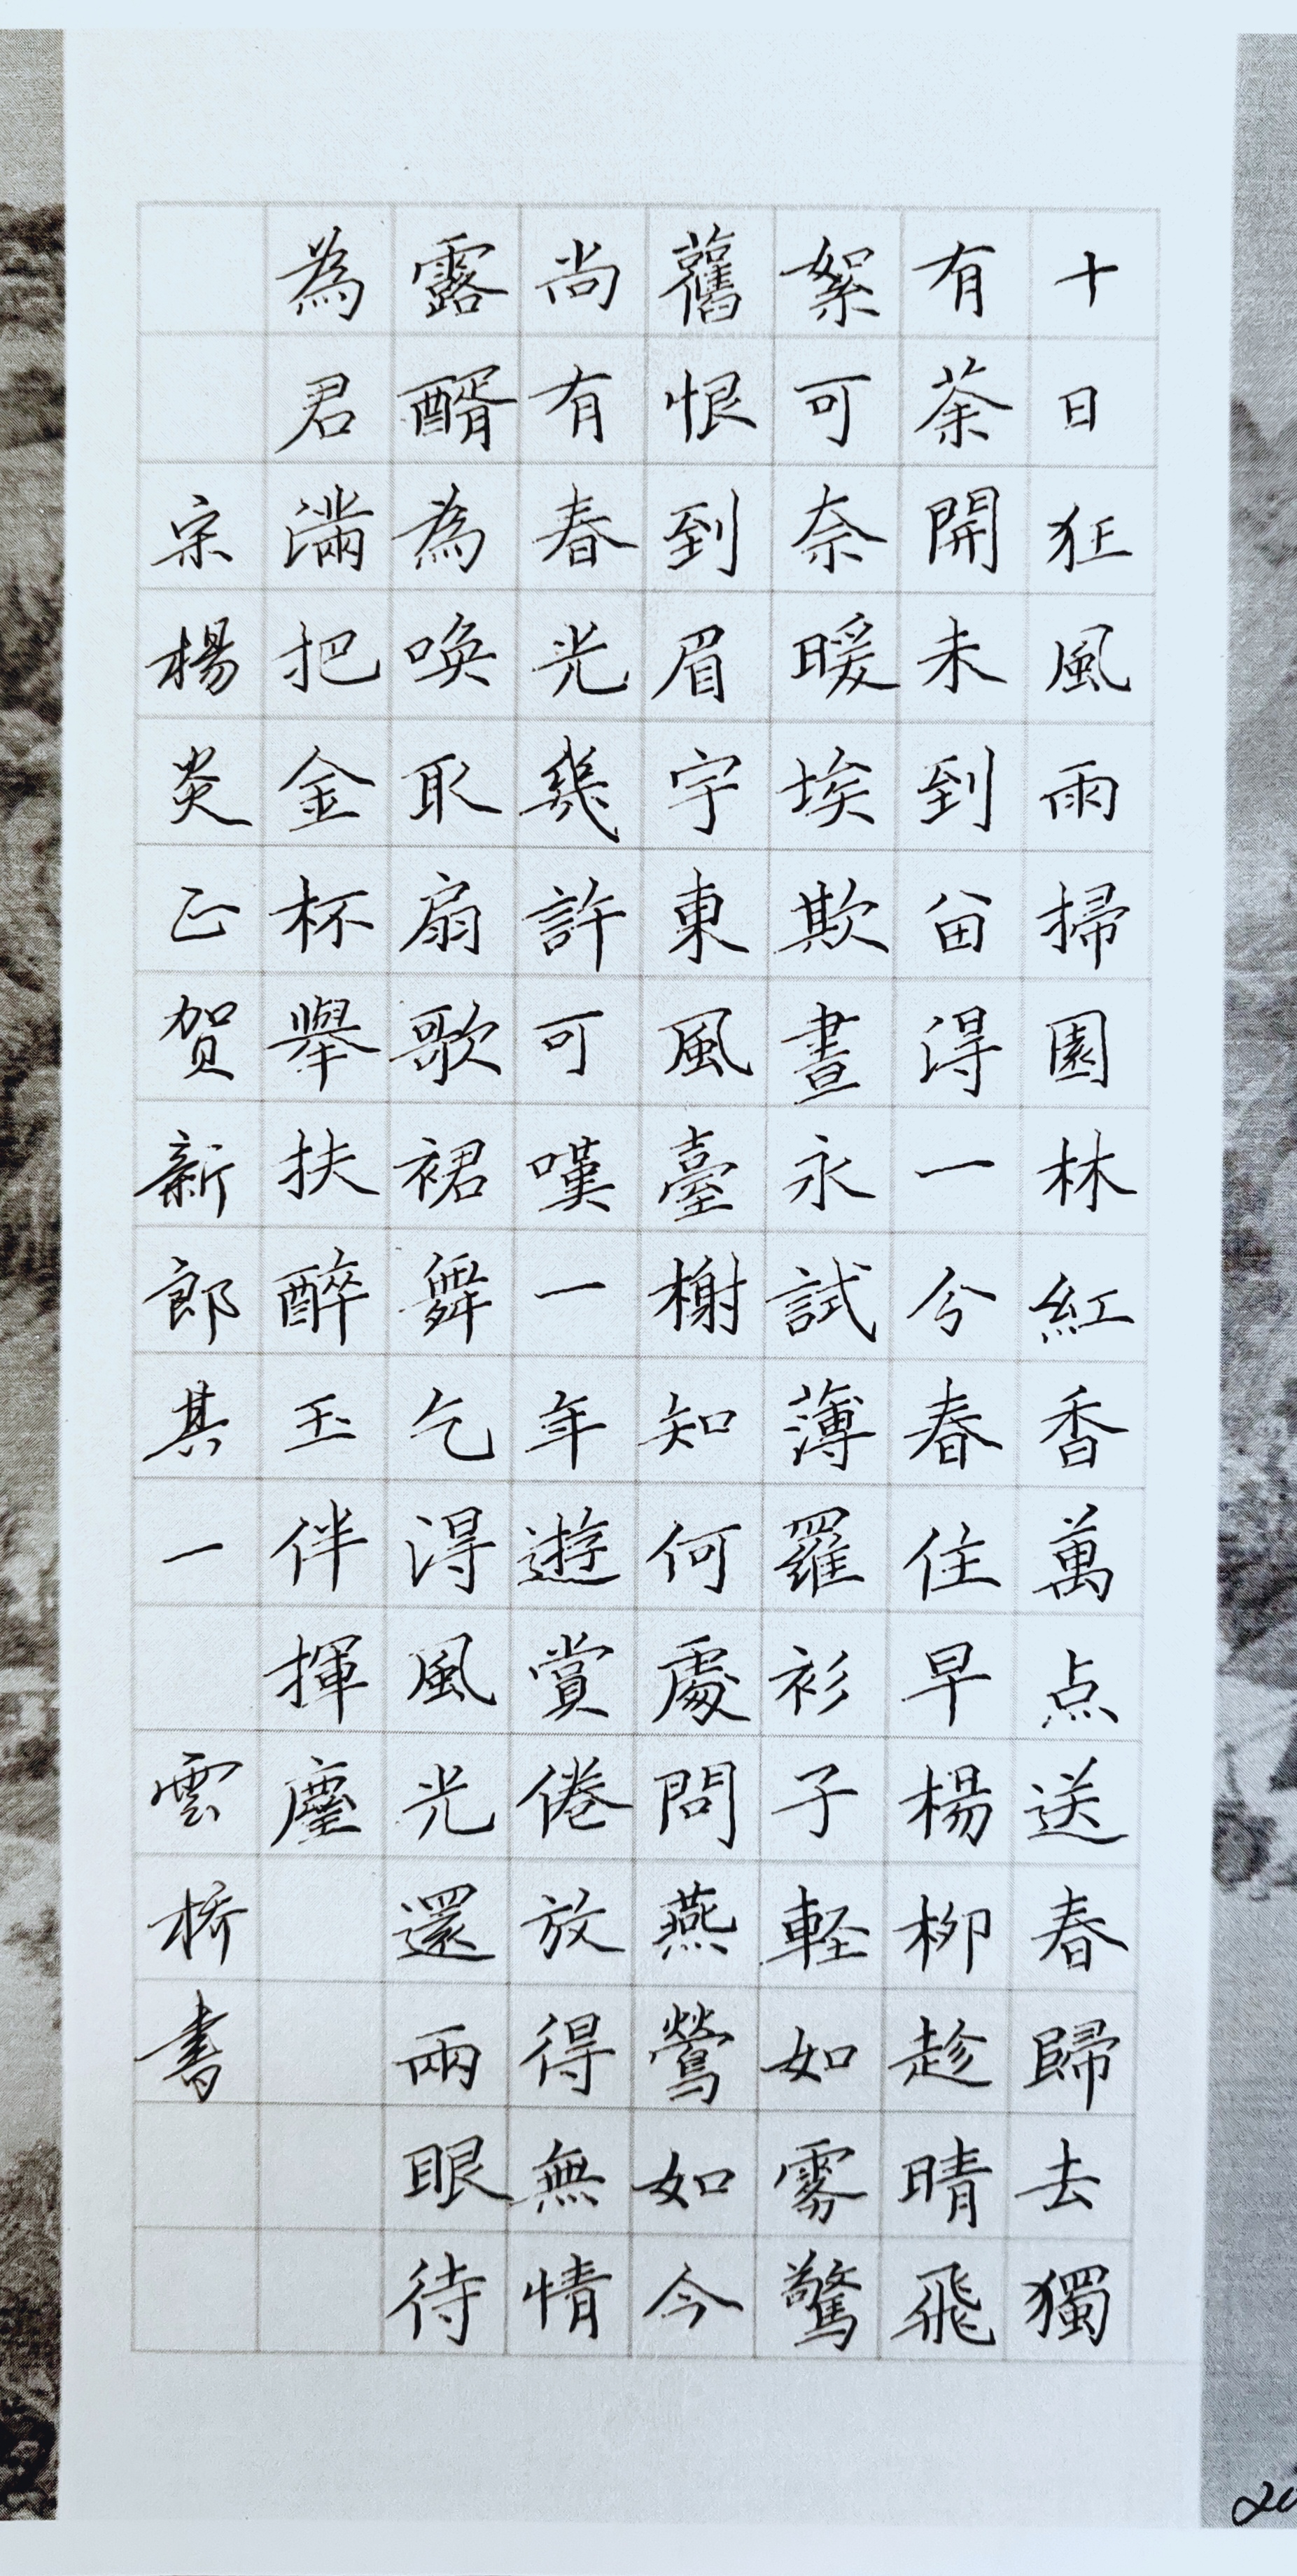 十日狂風雨掃園林紅香萬点送春歸去獨
有荼開未到留得一分春住早楊柳趁晴飛
絮可奈暖埃欺晝永試薄羅衫子輕如霧驚
舊恨到眉宇東風臺榭知何處問燕鶯如今
尚有春光幾許可嘆一年遊賞倦放得無情
露醑為喚取扇歌裙舞乞得風光還兩眼待
為君滿把金杯舉扶醉玉伴揮麈
宗楊炎正贺新郎其一雲桥書
20